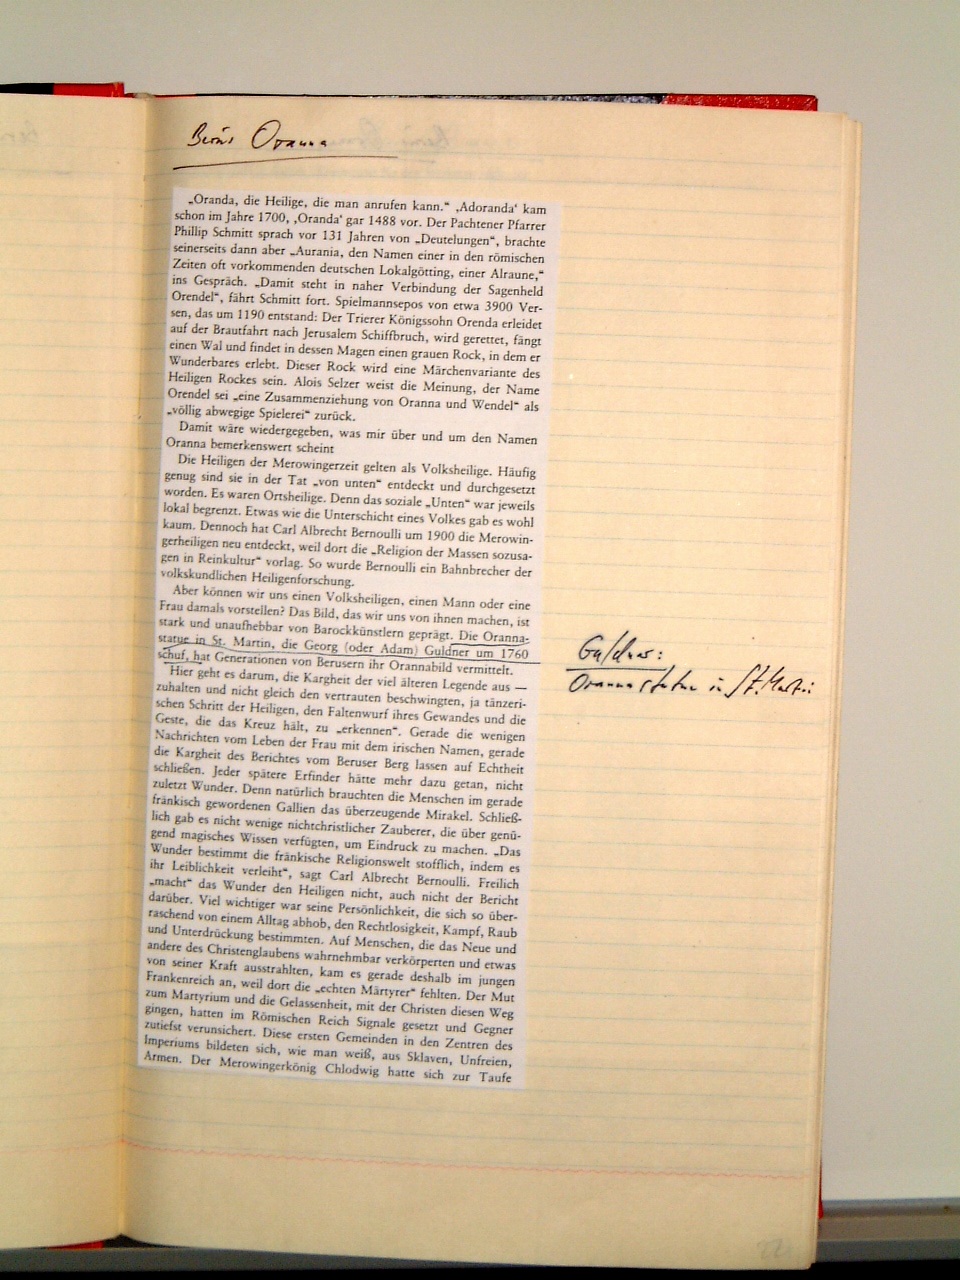 Berus Oranna
„Oranda, die Heilige, die man anrufen kann.“ ‚Adoranda‘ kam
schon im Jahre 1700, ‚Oranda‘ gar 1488 vor. Der Pachtener Pfarrer
Phillip Schmitt sprach vor 131 Jahren von „Deutelungen“, brachte
seinerseits dann aber „Aurania, den Namen einer in den römischen
Zeiten oft vorkommenden deutschen Lokalgötting, einer Alraune,“
ins Gespräch. „Damit steht in naher Verbindung der Sagenheld
Orendel“, fährt Schmitt fort. Spielmannsepos von etwa 3900 Ver-
sen, das um 1190 entstand: Der Trierer Königssohn Orenda erleidet
auf der Brautfahrt nach Jerusalem Schiffbruch, wird gerettet, fängt
einen Wal und findet in dessen Magen einen grauen Rock, in dem er
Wunderbares erlebt. Dieser Rock wird eine Märchenvariante des
Heiligen Rockes sein. Alois Selzer weist die Meinung, der Name
Orendel sei „eine Zusammenziehung von Oranna und Wendel“ als
„völlig abwegige Spielerei“ zurück.
Damit wäre wiedergegeben, was mir über und um den Namen
Oranna bemerkenswert scheint
Die Heiligen der Merowingerzeit gelten als Volksheilige. Häufig
genug sind sie in der Tat „von unten“ entdeckt und durchgesetzt
worden. Es waren Ortsheilige. Denn das soziale „Unten“ war jeweils
lokal begrenzt. Etwas wie die Unterschicht eines Volkes gab es wohl
kaum. Dennoch hat Carl Albrecht Bernoulli um 1900 die Merowin-
gerheiligen neu entdeckt, weil dort die „Religion der Massen sozusa-
gen in Reinkultur“ vorlag. So wurde Bernoulli ein Bahnbrecher der
volkskundlichen Heiligenforschung.
Aber können wir uns einen Volksheiligen, einen Mann oder eine
Frau damals vorstellen? Das Bild, das wir uns von ihnen machen, ist
stark und unaufhebbar von Barockkünstlern geprägt. Die Oranna-
statue in St. Martin, die Georg (oder Adam) Guldner um 1760
schuf, hat Generationen von Berusern ihr Orannabild vermittelt.
Hier geht es darum, die Kargheit der viel älteren Legende aus —
zuhalten und nicht gleich den vertrauten beschwingten, ja tänzeri-
schen Schritt der Heiligen, den Faltenwurf ihres Gewandes und die
Geste, die das Kreuz hält, zu „erkennen“. Gerade die wenigen
Nachrichten vom Leben der Frau mit dem irischen Namen, gerade
die Kargheit des Berichtes vom Beruser Berg lassen auf Echtheit
schließen. Jeder spätere Erfinder hätte mehr dazu getan, nicht
zuletzt Wunder. Denn natürlich brauchten die Menschen im gerade
fränkisch gewordenen Gallien das überzeugende Mirakel. Schließ-
lich gab es nicht wenige nichtchristlicher Zauberer, die über genü-
gend magisches Wissen verfügten, um Eindruck zu machen. „Das
Wunder bestimmt die fränkische Religionswelt stofflich, indem es
ihr Leiblichkeit verleiht“, sagt Carl Albrecht Bernoulli. Freilich
„macht“ das Wunder den Heiligen nicht, auch nicht der Bericht
darüber. Viel wichtiger war seine Persönlichkeit, die sich so über-
raschend von einem Alltag abhob, den Rechtlosigkeit, Kampf, Raub
und Unterdrückung bestimmten. Auf Menschen, die das Neue und
andere des Christenglaubens wahrnehmbar verkörperten und etwas
von seiner Kraft ausstrahlten, kam es gerade deshalb im jungen
Frankenreich an, weil dort die „echten Märtyrer“ fehlten. Der Mut
zum Martyrium und die Gelassenheit, mit der Christen diesen Weg
gingen, hatten im Römischen Reich Signale gesetzt und Gegner
zutiefst verunsichert. Diese ersten Gemeinden in den Zentren des
Imperiums bildeten sich, wie man weiß, aus Sklaven, Unfreien,
Armen. Der Merowingerkönig Chlodwig hatte sich zur Taufe
Guldner:
Orannastatue in St. Martin